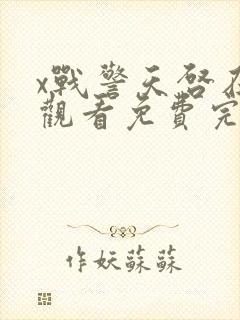 x戰警天啓在
觀看免費完
作妖蘇蘇